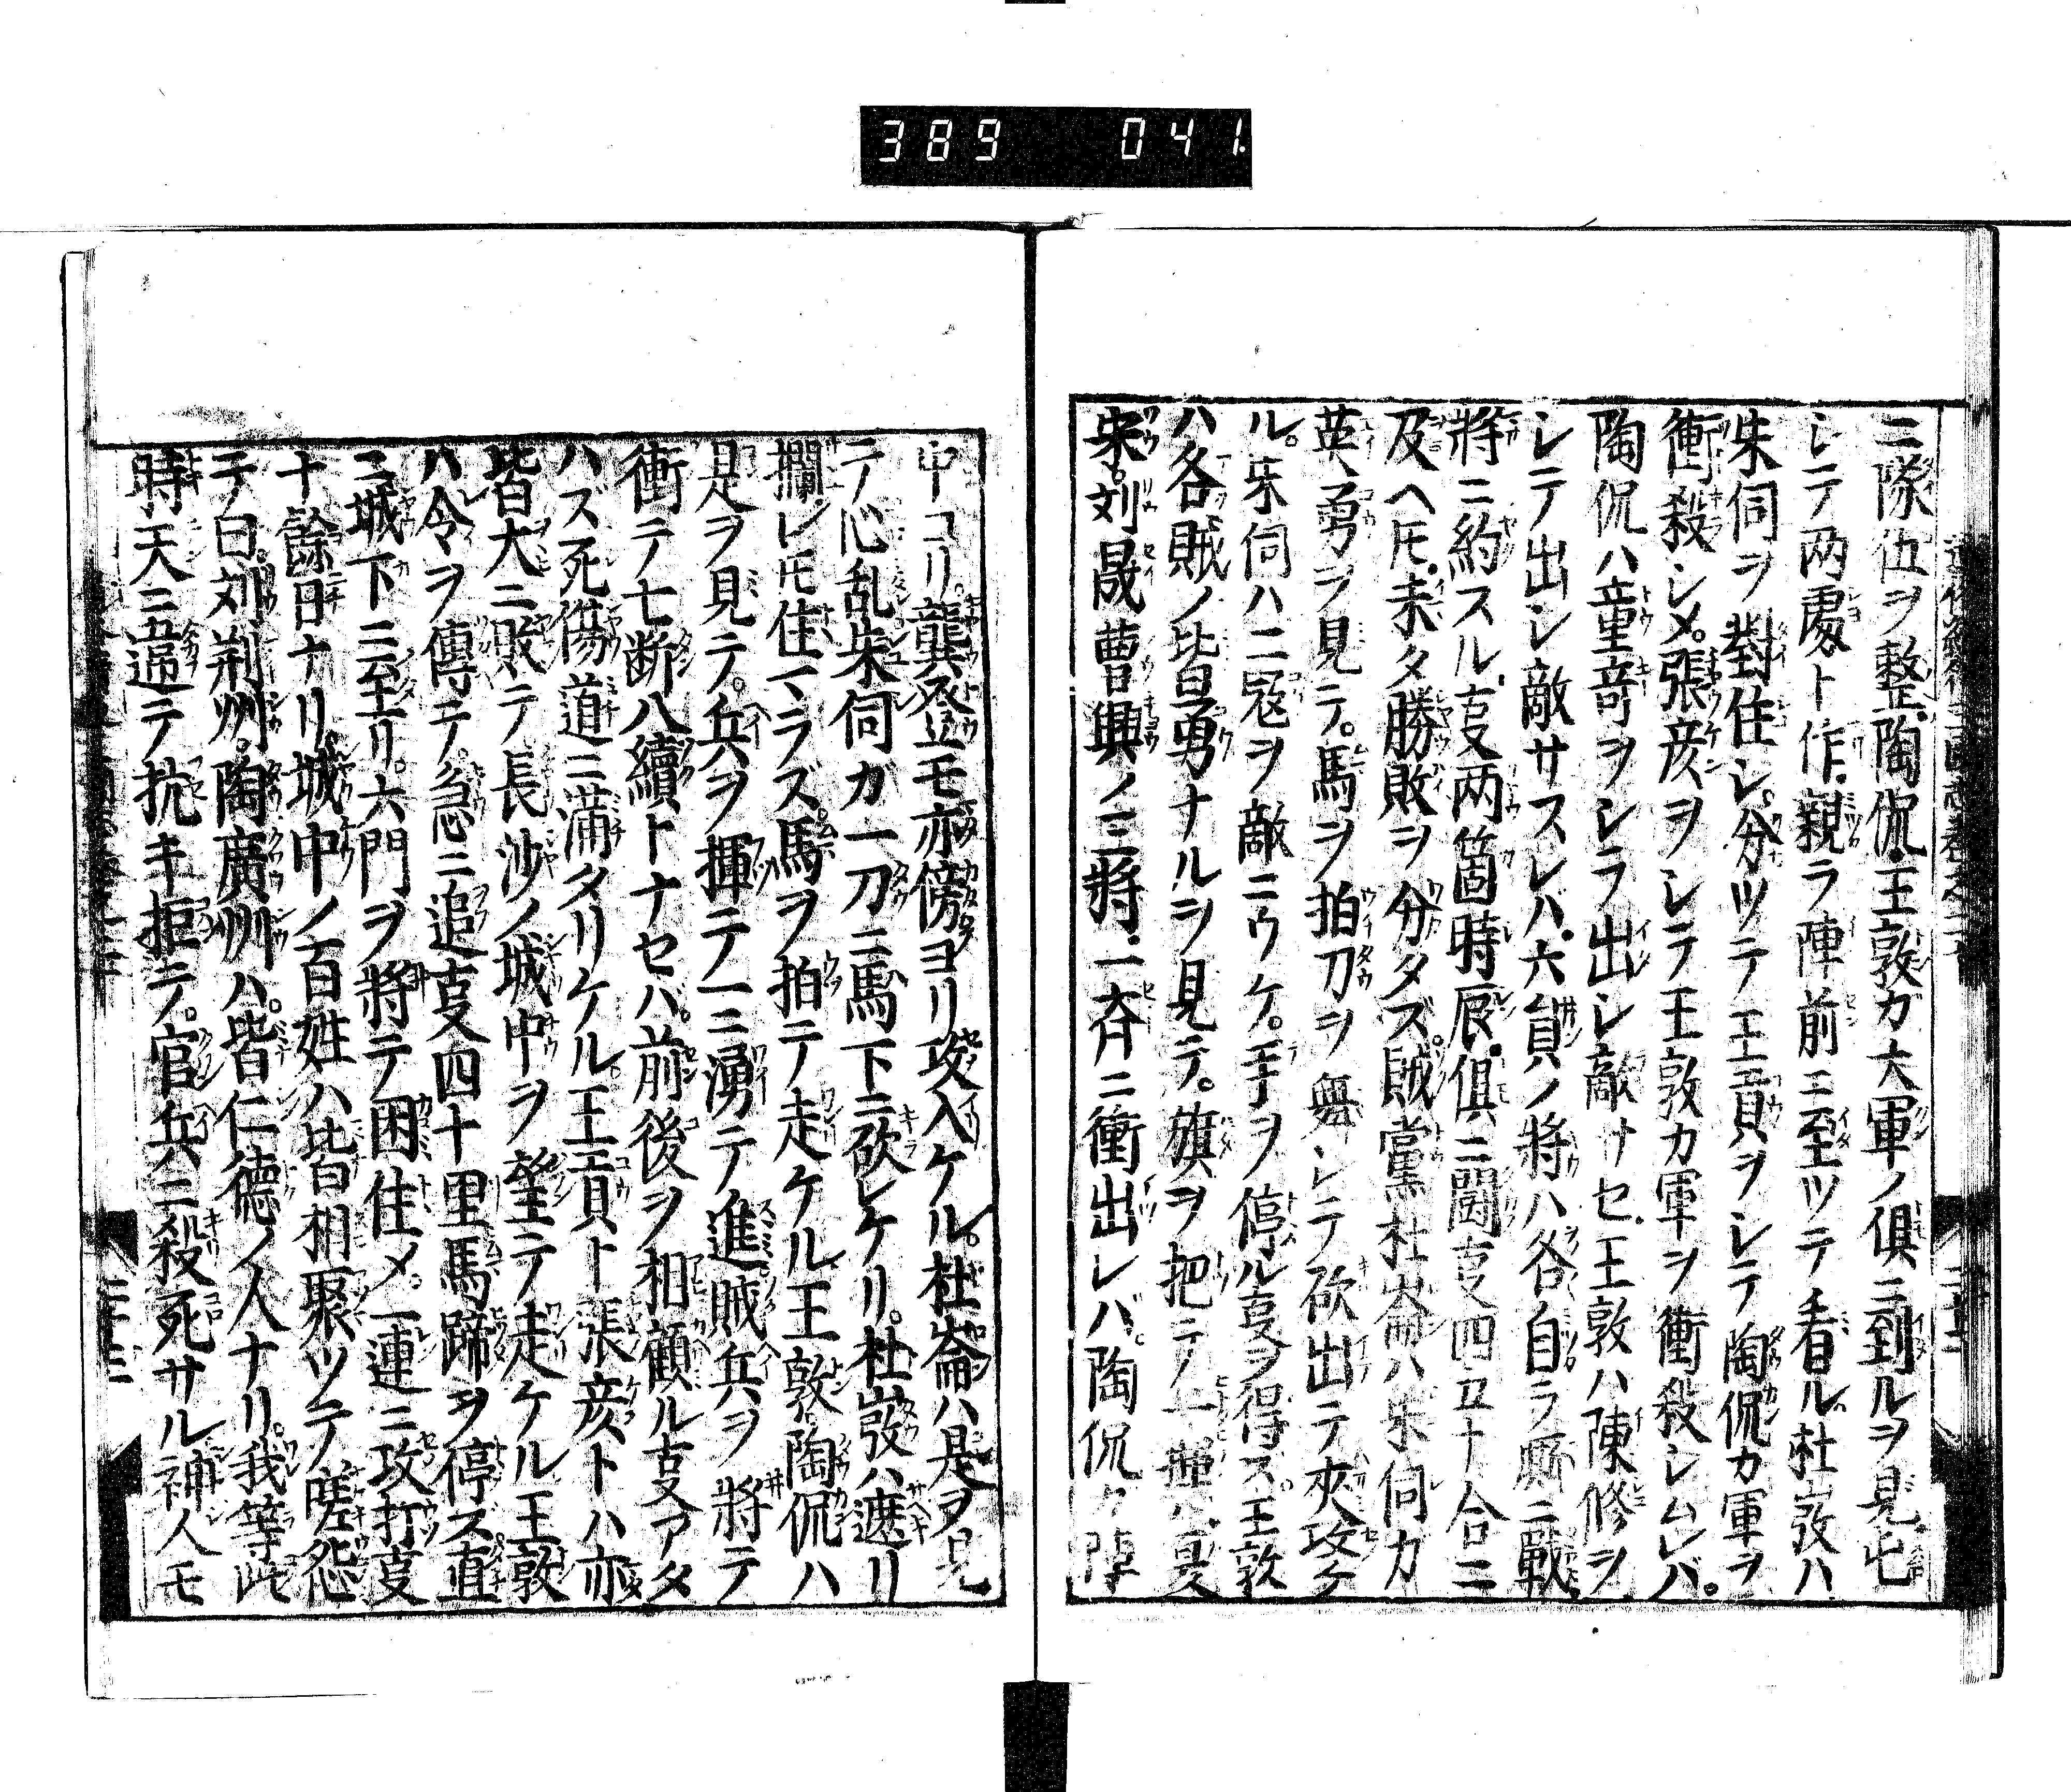 389 041.
ニ隊伍ヲ整陶侃王敦ガ大軍ノ俱ニ到ルヲ見
シテ两處ト作親ラ陣前ニ至ツテ看ル杜弢ハ
朱伺ヲ對住シ。分ツテ王貢ヲシテ陶侃カ軍ヲ
衝殺シメ。張彦ヲシテ王敦カ軍ヲ衝殺シムレバ。
陶侃ハ童竒ヲシラ出シ敵サセ王敦ハ陳修ヲ
シテ出シ敵サスレバ六員ノ將ハ各自ラ ニ戰
將ニ約スル叓两箇時辰俱ニ鬪叓四五十合ニ
及ヘ𪜈未タ勝敗ヲ分タズ賊黨杜崙ハ朱伺カ
英勇ヲ見テ。馬ヲ拍刀ヲ舞シテ砍出テ夾攻ケ
ル。朱伺ハ二冦ヲ敵ニウケ。手ヲ停ル叓ヲ得ス王敦
ハ各賊ノ皆勇ナルヲ見テ。旗ヲ把テ一揮ハ夏
宋。刘晟曹興ノ三將一斉ニ衝出レバ。陶侃ヶ陣
中ヨリ龔登モ亦傍ヨリ攻入ケル。杜崙ハ是ヲ見
テ心乱朱伺ガ一刀ニ馬下ニ砍レケリ。杜弢ハ遮リ
攔レ𪜈住マラズ。馬ヲ拍テ走ケル王敦陶侃ハ
是ヲ見テ。兵ヲ揮テ一ニ湧テ進賊兵ヲ將テ
衝テ七断八續トナセバ。前後ヲ相顧ル叓アタ
ハズ死傷道ニ滿タリケル。王貢ト張彦トハ亦
皆大ニ敗テ長沙ノ城中ヲ望テ走ケル王敦
ハ令ヲ傳テ。急ニ追叓四十里馬蹄ヲ停ズ直
ニ城下ニ至リ。六門ヲ將テ困住メ。一連ニ攻打叓
十餘日ナリ。城中ノ百姓ハ皆相聚ツテ嗟怨
テ曰。刘荆州。陶廣州ハ。皆仁德ノ人ナリ。我等此
時天ニ逼テ抗キ拒テ。官兵ニ殺死サル神人モ
二十三